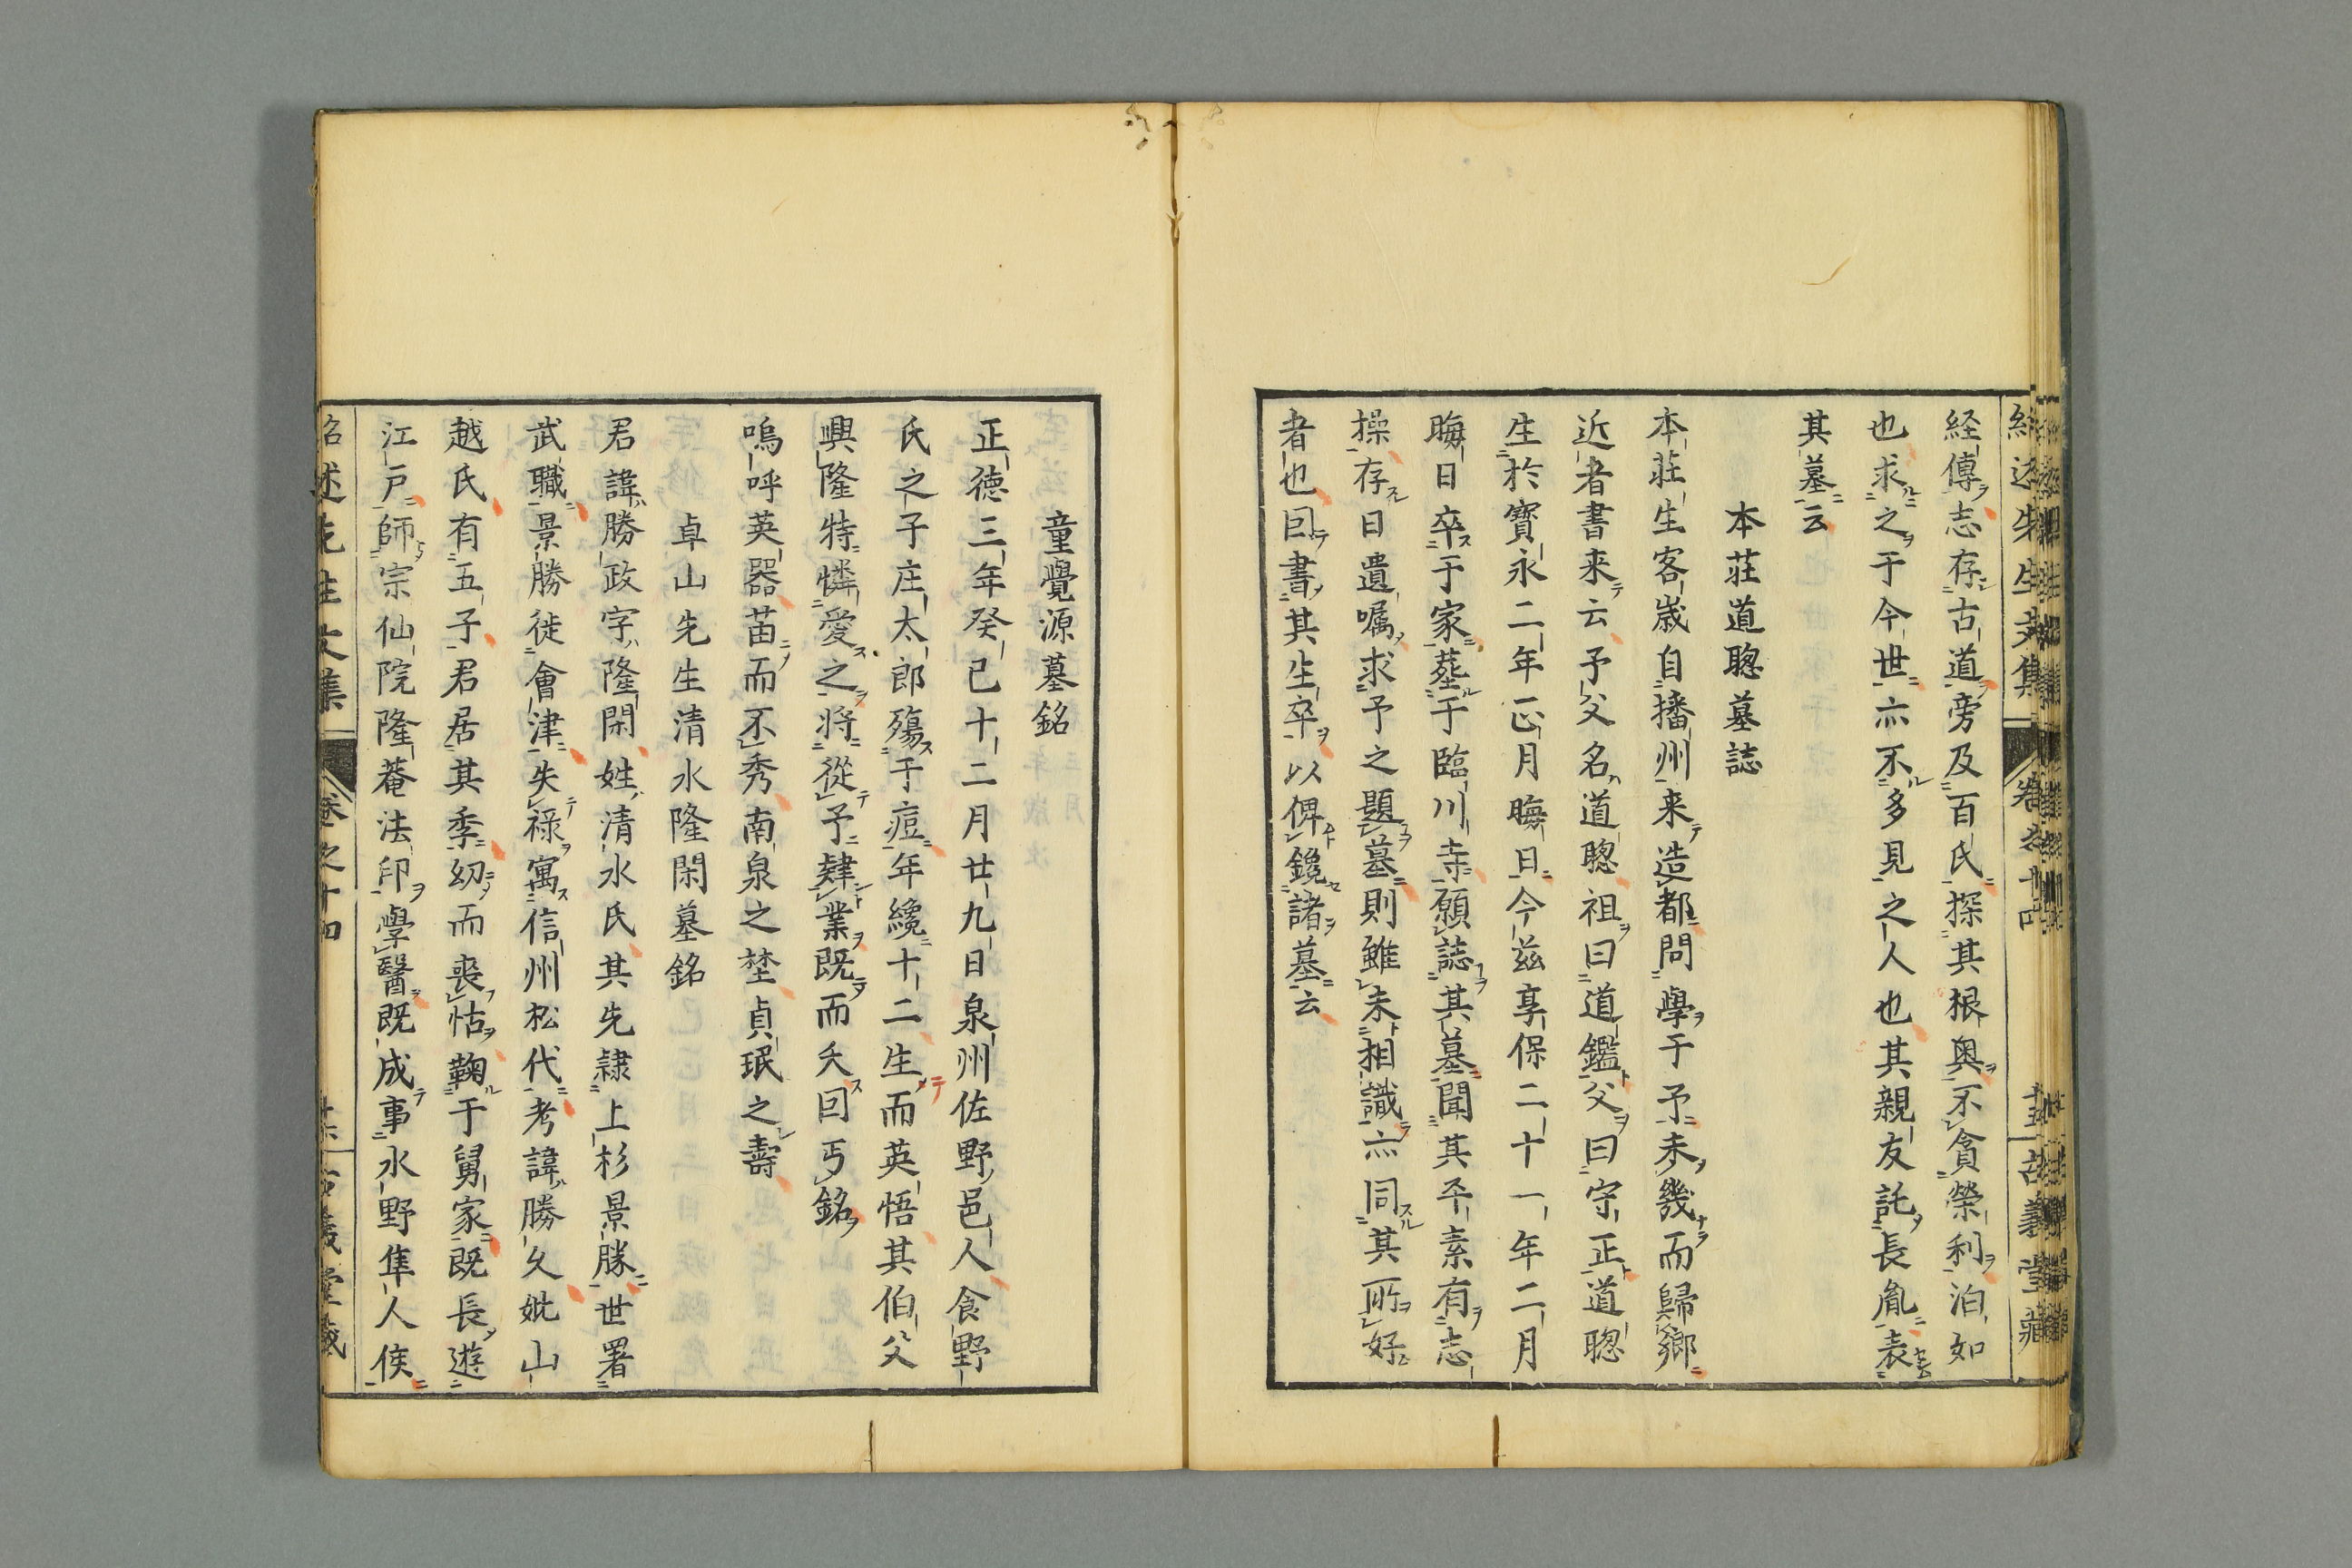 経傳志存古道旁及百氏探其根奥不貪榮利泊如
也求之于今世亦不多見之人也其親友託長胤表
其墓云
本莊道聰墓誌
本莊生客歳自播州来造都問學于予未幾而歸鄉
近者書来云予父名道聰祖曰道鑑父曰守正道聰
生於寶永二年正月晦日今茲享保二十一年二月
晦日卒于家葬于臨川寺願誌其墓聞其平素有志
操存日遺嘱求予之題墓則雖未相識亦同其所好
者也因書其生卒以俾鑱諸墓云
童覺源墓銘
正徳三年癸巳十二月廿九日泉州佐野邑人食野
氏之子庄太郎殤于痘年纔十二生而英悟其伯父
興隆特憐愛之将從予肄業既而夭因丐銘
嗚呼英器苗而不秀南泉之埜貞珉之壽
卓山先生清水隆閑墓銘
君諱勝政字隆閑姓清水氏其先隷上杉景勝世署
武職景勝徙會津失禄寓信州松代考諱勝久妣山
越氏有五子君居其季幼而喪怙鞠于舅家既長遊
江戸師宗仙院隆菴法印學醫既成事水野隼人侯
紹述先生文集 卷之十四 古義堂藏